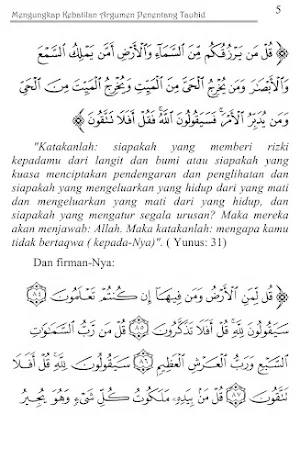 Mengungkap Kebatilan Argumen Penentang Tauhid 5
﴿ قُلْ مَن يَرْزُقُكُم مِّنَ السَّمَاءِ وَالْأَرْضِ أَمَّن يَمْلِكُ السَّمْعَ
وَالْأَبْصَارَ وَمَن يُخْرِجُ الْحَيَّ مِنَ الْمَيِّتِ وَيُخْرِجُ الْمَيِّتَ مِنَ الْحَيِّ
وَمَن يُدَبِّرُ الْأَمْرَ ۚ فَسَيَقُولُونَ اللَّهُ ۚ فَقُلْ أَفَلَا تَتَّقُونَ ﴾
"Katakanlah: siapakah yang memberi rizki
kepadamu dari langit dan bumi atau siapakah yang
kuasa menciptakan pendengaran dan penglihatan dan
siapakah yang mengeluarkan yang hidup dari yang mati
dan mengeluarkan yang mati dari yang hidup, dan
siapakah yang mengatur segala urusan? Maka mereka
akan menjawab: Allah. Maka katakanlah: mengapa kamu
tidak bertaqwa ( kepada-Nya)". ( Yunus: 31)
Dan firman-Nya:
﴿ قُل لِّمَنِ الْأَرْضُ وَمَن فِيهَا إِن كُنتُمْ تَعْلَمُونَ ٨٤
سَيَقُولُونَ لِلَّهِ ۚ قُلْ أَفَلَا تَذَكَّرُونَ ٨٥ قُلْ مَن رَّبُّ السَّمَاوَاتِ
السَّبْعِ وَرَبُّ الْعَرْشِ الْعَظِيمِ ٨٦ سَيَقُولُونَ لِلَّهِ ۚ قُلْ أَفَلَا
تَتَّقُونَ ٨٧ قُلْ مَن بِيَدِهِ مَلَكُوتُ كُلِّ شَيْءٍ وَهُوَ يُجِيرُ